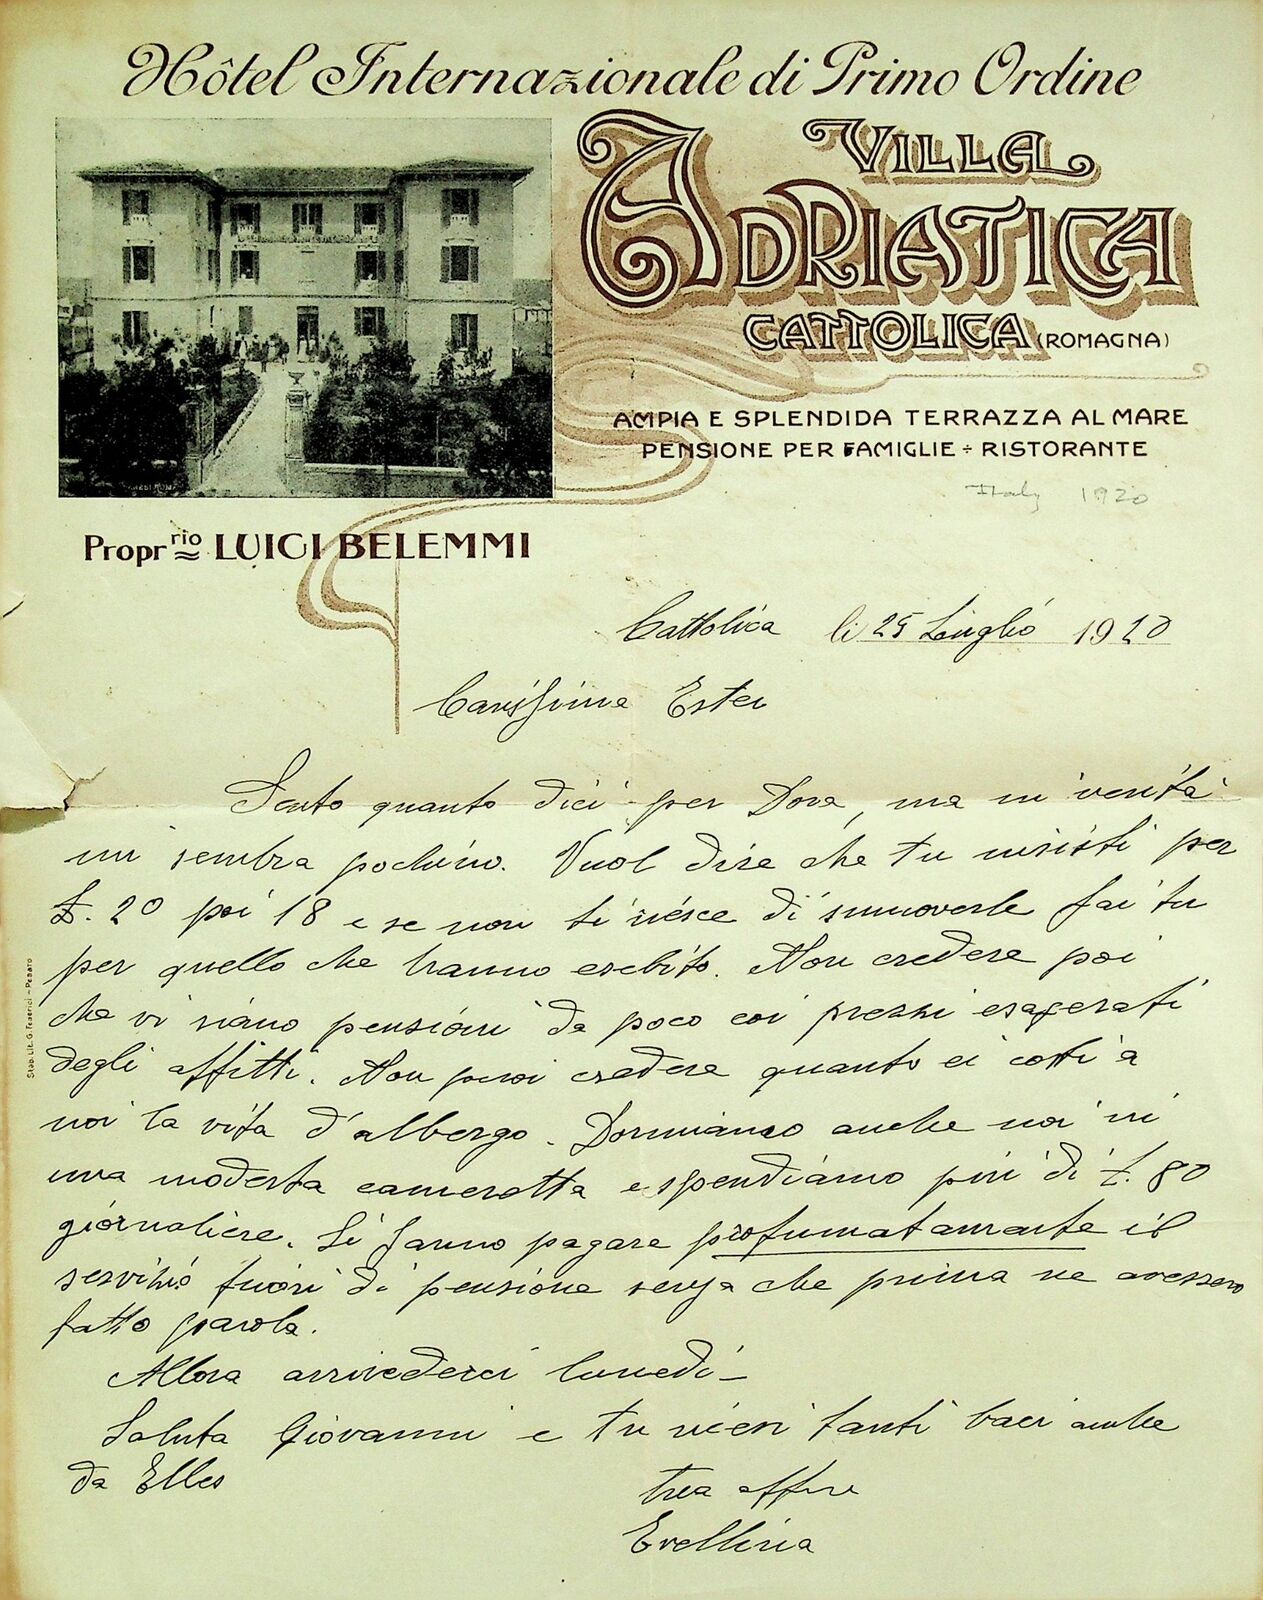 Hôtel Internazionale di Primo Ordine
VILLA
ADRIATICA
CATTOLICA (ROMAGNA)
AMPIA E SPLENDIDA TERRAZZA AL MARE
PENSIONE PER FAMIGLIE ÷ RISTORANTE
Italy 1920
Propr.rio LUIGI BELEMMI
Cattolica li 25 Luglio 1920
Carissima Ester
Sento quanto dici per Dora, ma in verità
mi sembra pochino. Vuol dire che tu insisti per
£. 20 poi 18 e se non ti riesce di smuoverle fai tu
per quello che hanno esebito. Non credere poi
che vi siano pensioni da poco coi prezzi esagerati
degli affitti. Non puoi credere quanto ci costi a
noi la vita d'albergo. Dormiamo anche noi in
una modesta cameretta e spendiamo più di £. 80
giornaliere. Si fanno pagare profumatamente il
servizio fuori di pensione senza che prima ne avessero
fatto parola.
Allora arrivederci lunedì -
Saluta Giovanni e tu ricevi tanti baci anche
da Elles
tua
Evellina
Stab. Lit. G. Federici - Pesaro